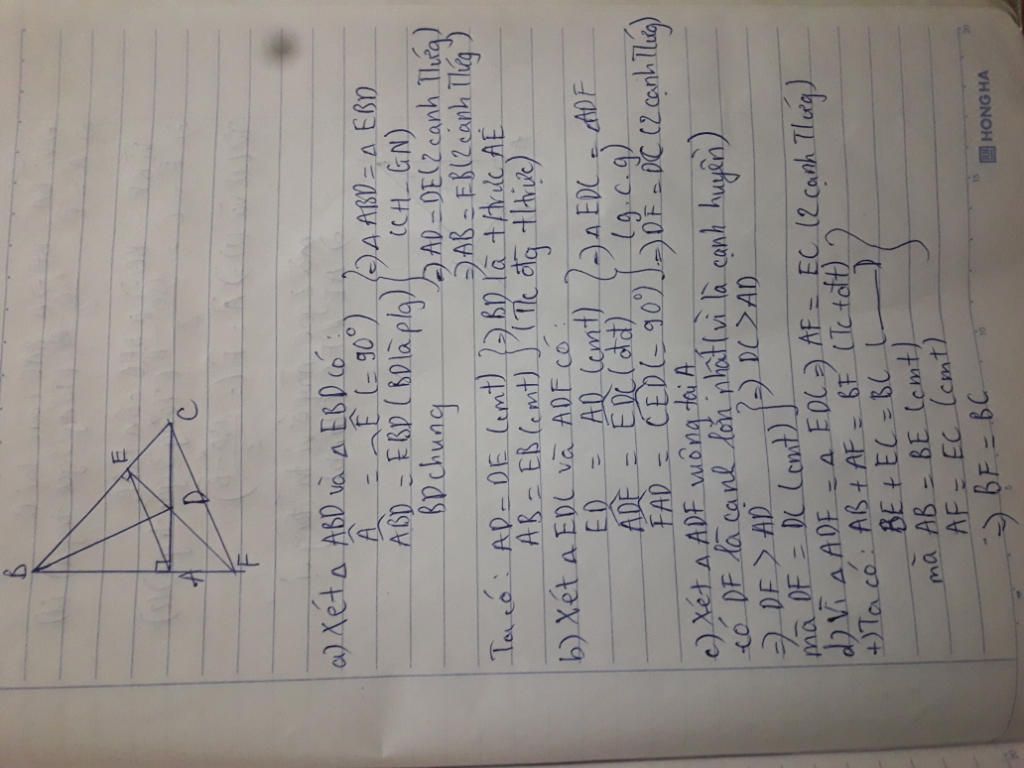 B
E
C
D
A
F
a) Xét Δ ABD và Δ EBD có:
Â = Ê (= 90°)
ABD = EBD (BD là plg)
BD chung
} =) Δ ABD = Δ EBD
(CH - GN)
=) AD = DE (2 cạnh Tứg)
=) AB = EB (2 cánh Tứg)
Ta có: AD = DE (cmt)
AB = EB (cmt)
} =) BD là tтrực AE
(Tc đg tтrực)
b) Xét Δ EDC và ADF có:
ED = AD (cmt)
ADF = EDC (đđ)
FAD = CED (= 90°)
} =) Δ EDC = ΔADF
(g.c.g)
=) DF = DC (2 cạnh Tứg)
c) Xét Δ ADF vuông tại A
có DF là cạnh lớn nhất (vì là cạnh huyền)
=) DF > AD
mà DF = DC (cmt)
} =) DC > AD
d) Vì Δ ADF = Δ EDC =) AF = EC (2 cạnh Tứg)
+) Ta có: AB + AF = BF (Tc + dt)
BE + EC = BC (
mà AB = BE (cmt)
AF = EC (cmt)
=) BF = BC
HONG HA